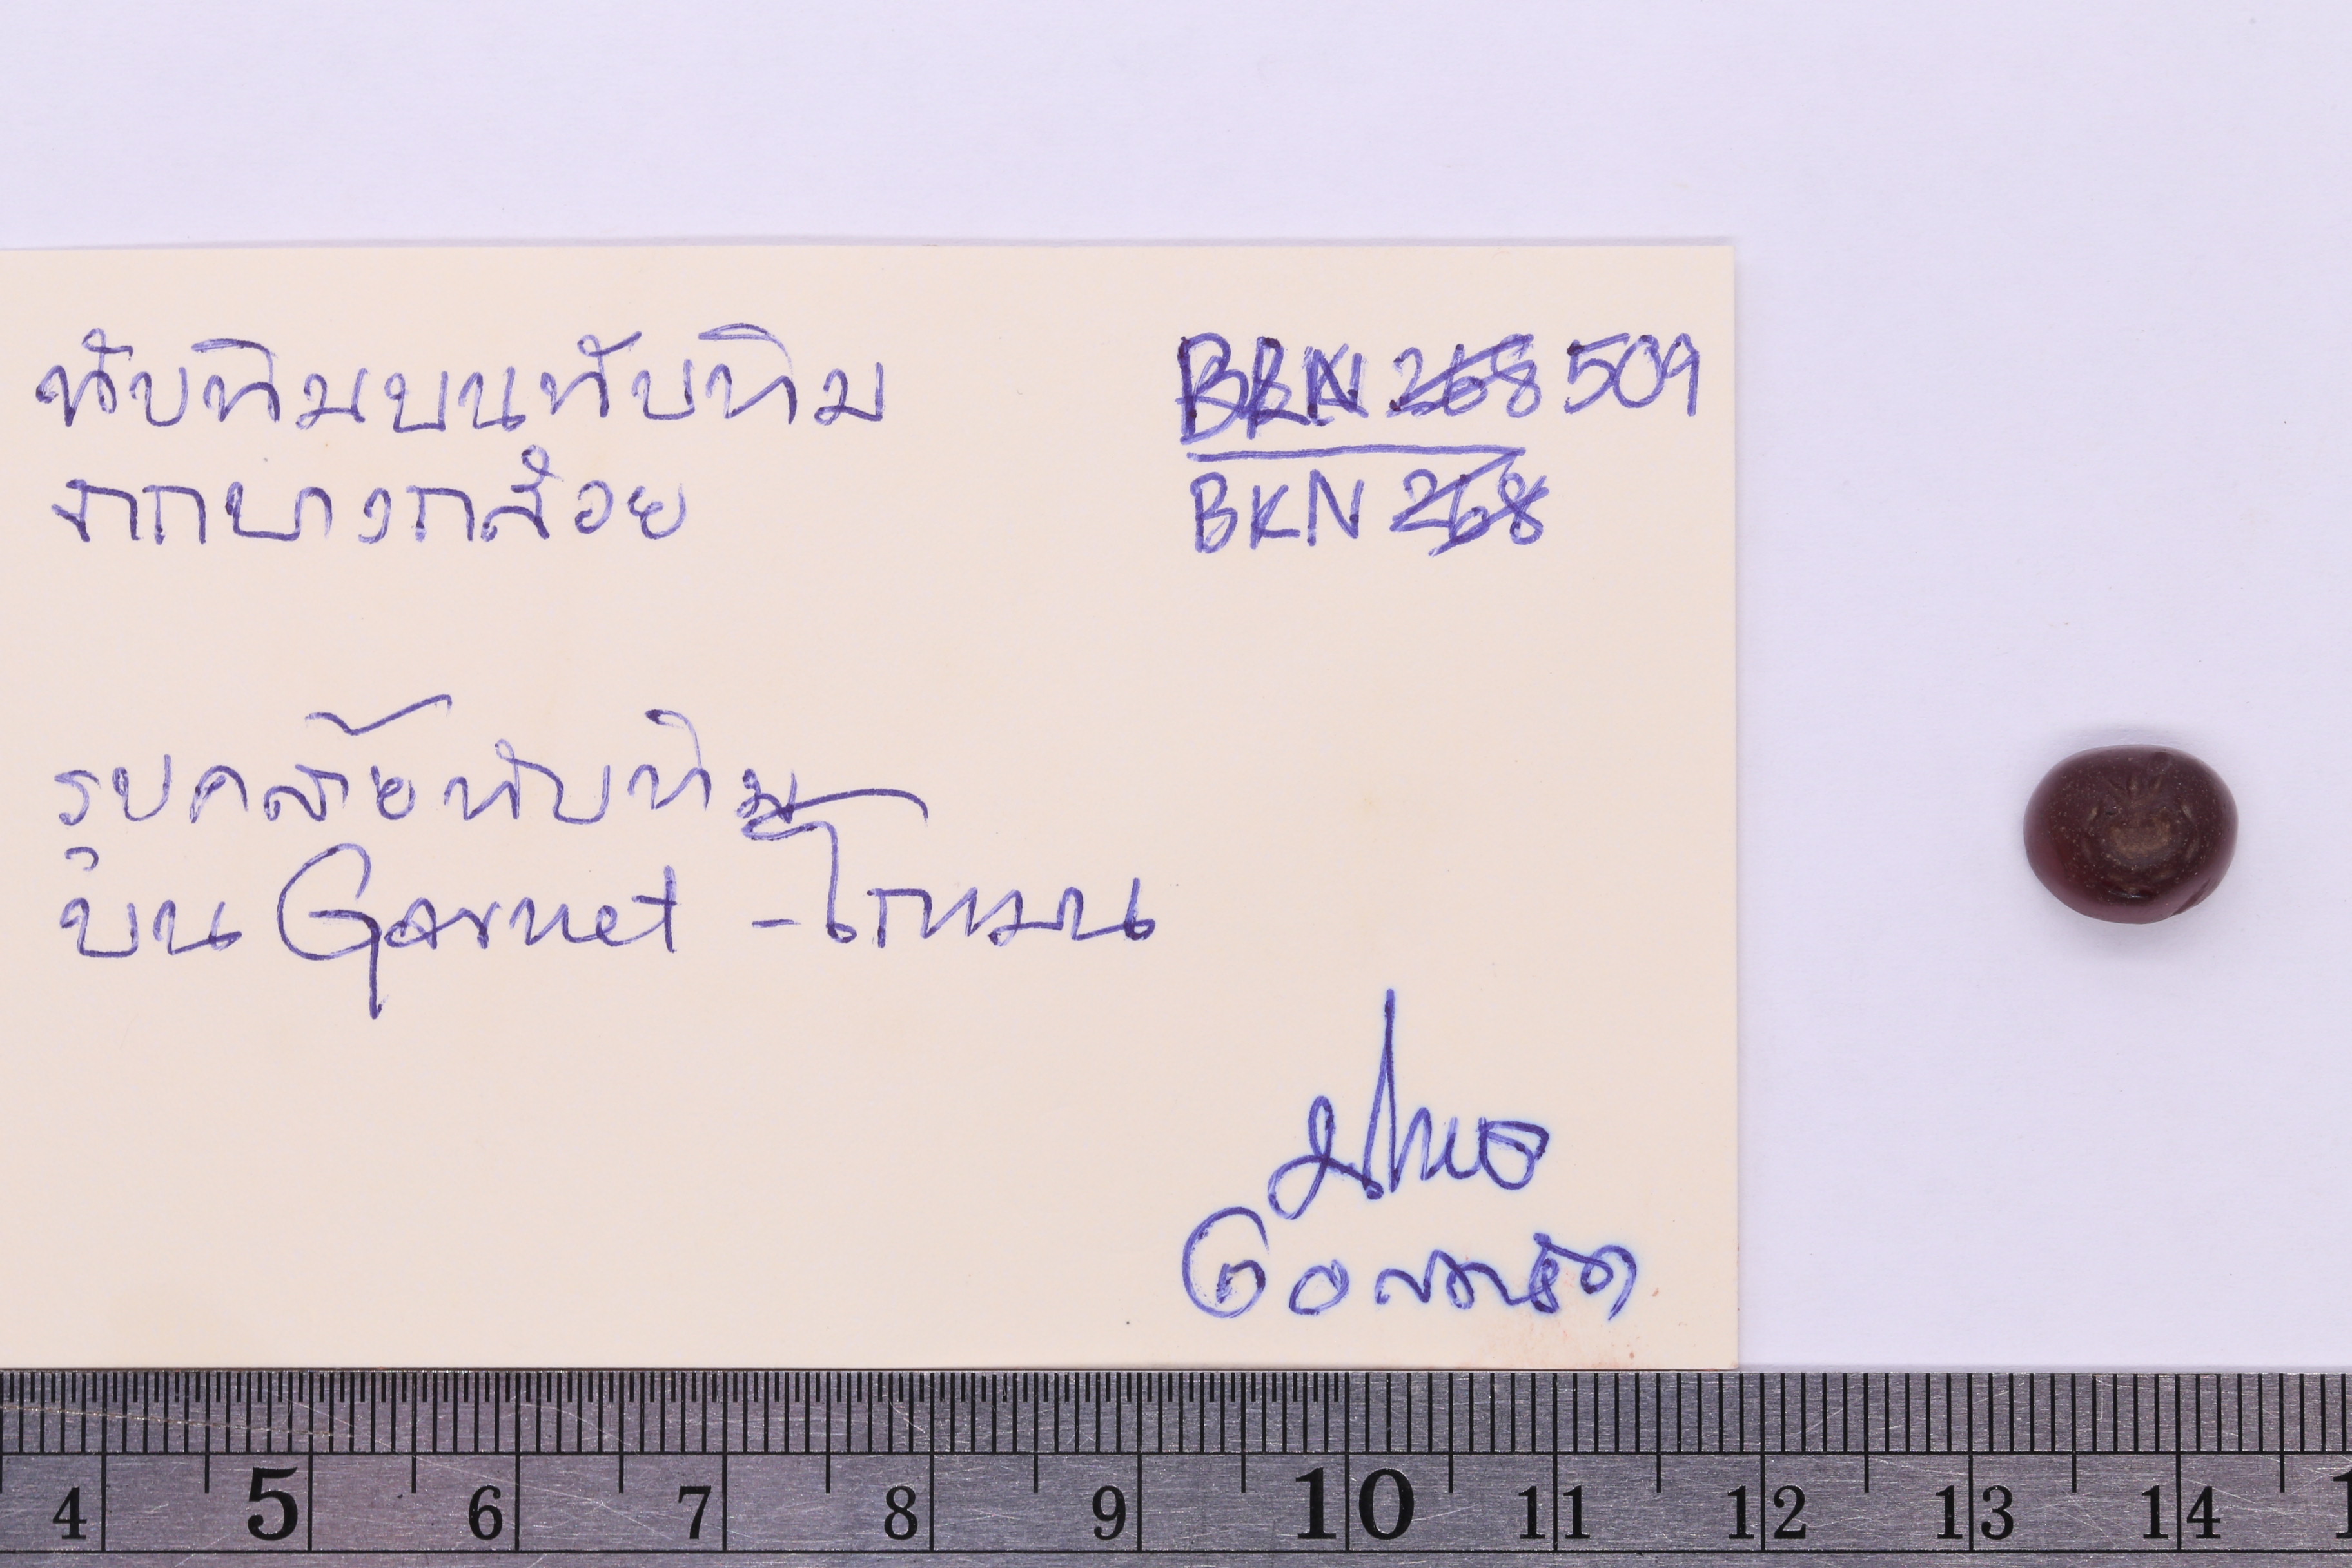 ทับทิมบนทับทิม
จากบางกล้วย
BKN 268 509
BKN 268
รูปคล้ายทับทิม
บน Garnet - โกเมน
4 5 6 7 8 9 10 11 12 13 14